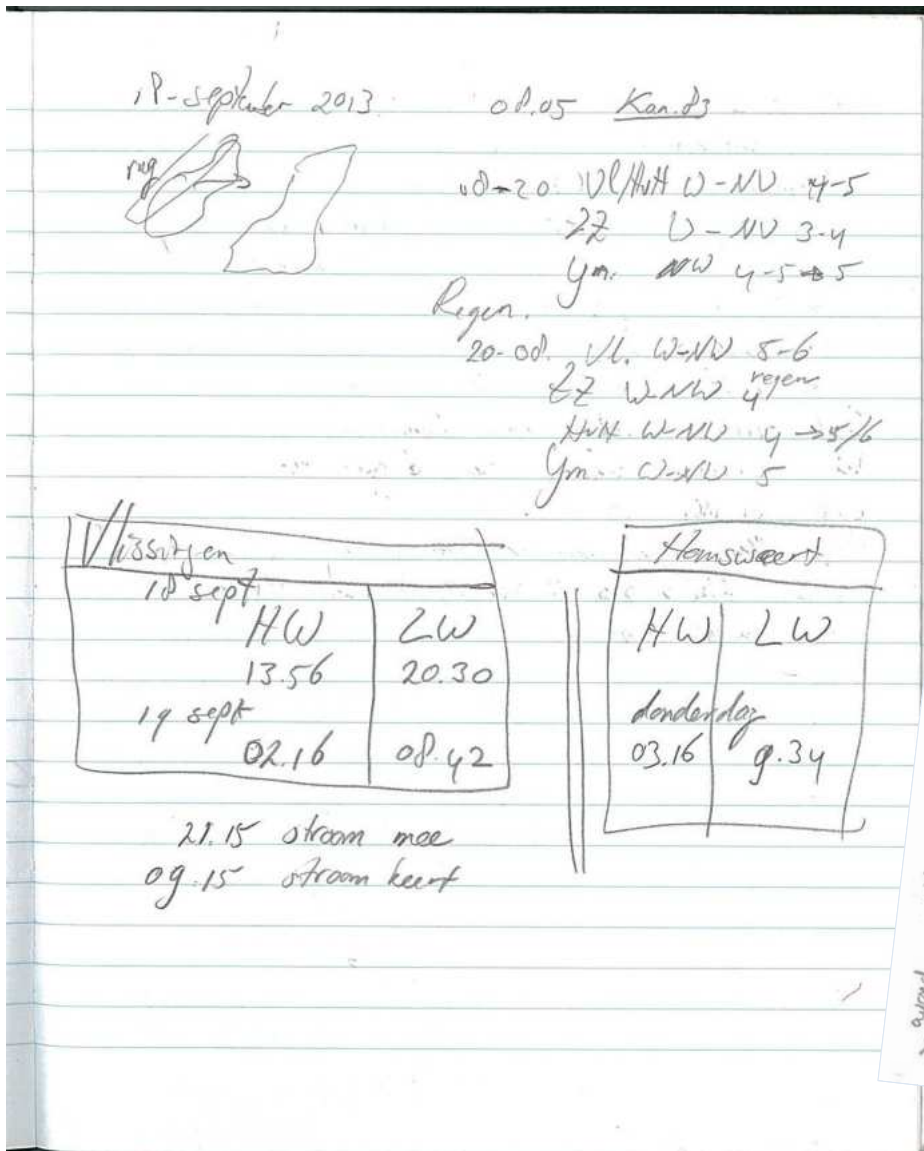 18-september 2013 08.05 Kan. 83
rug
08-20 Vl/HvH W-NW 4-5
ZZ W-NW 3-4
Ym. NW 4-5 → 5
Regen.
20-08. Vl. W-NW 5-6
ZZ W-NW 4 regen
HvH W-NW 4 → 5/6
Ym. W-NW 5
Vlissingen
18 sept
HW LW
13.56 20.30
19 sept
02.16 08.42
Hansweert
HW LW
donderdag
03.16 9.34
21.15 stroom mee
09.15 stroom keert
avond